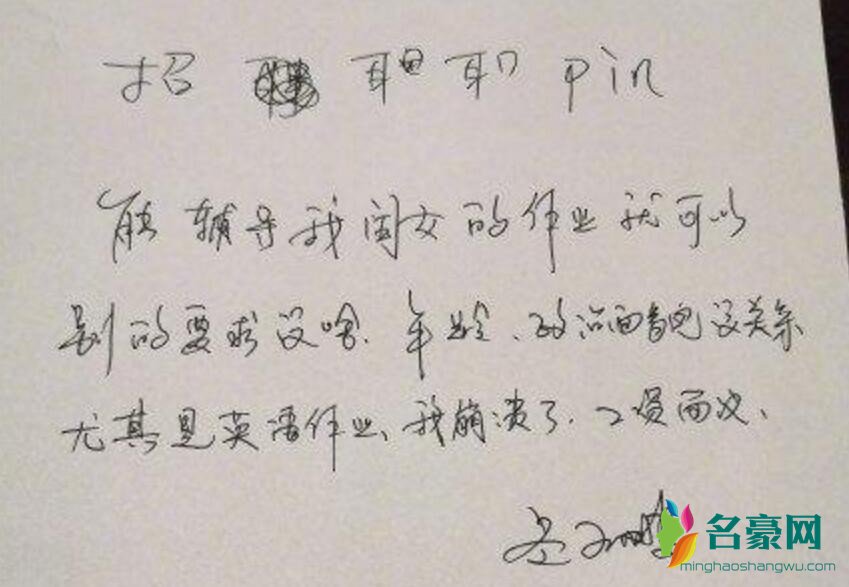 招 职 pin
能辅导我闺女的作业就可以
别的要求没啥、年龄、政治面貌没关系
尤其是英语作业、我崩溃了. 工资面议、
名豪网
minghaoshangwu.com